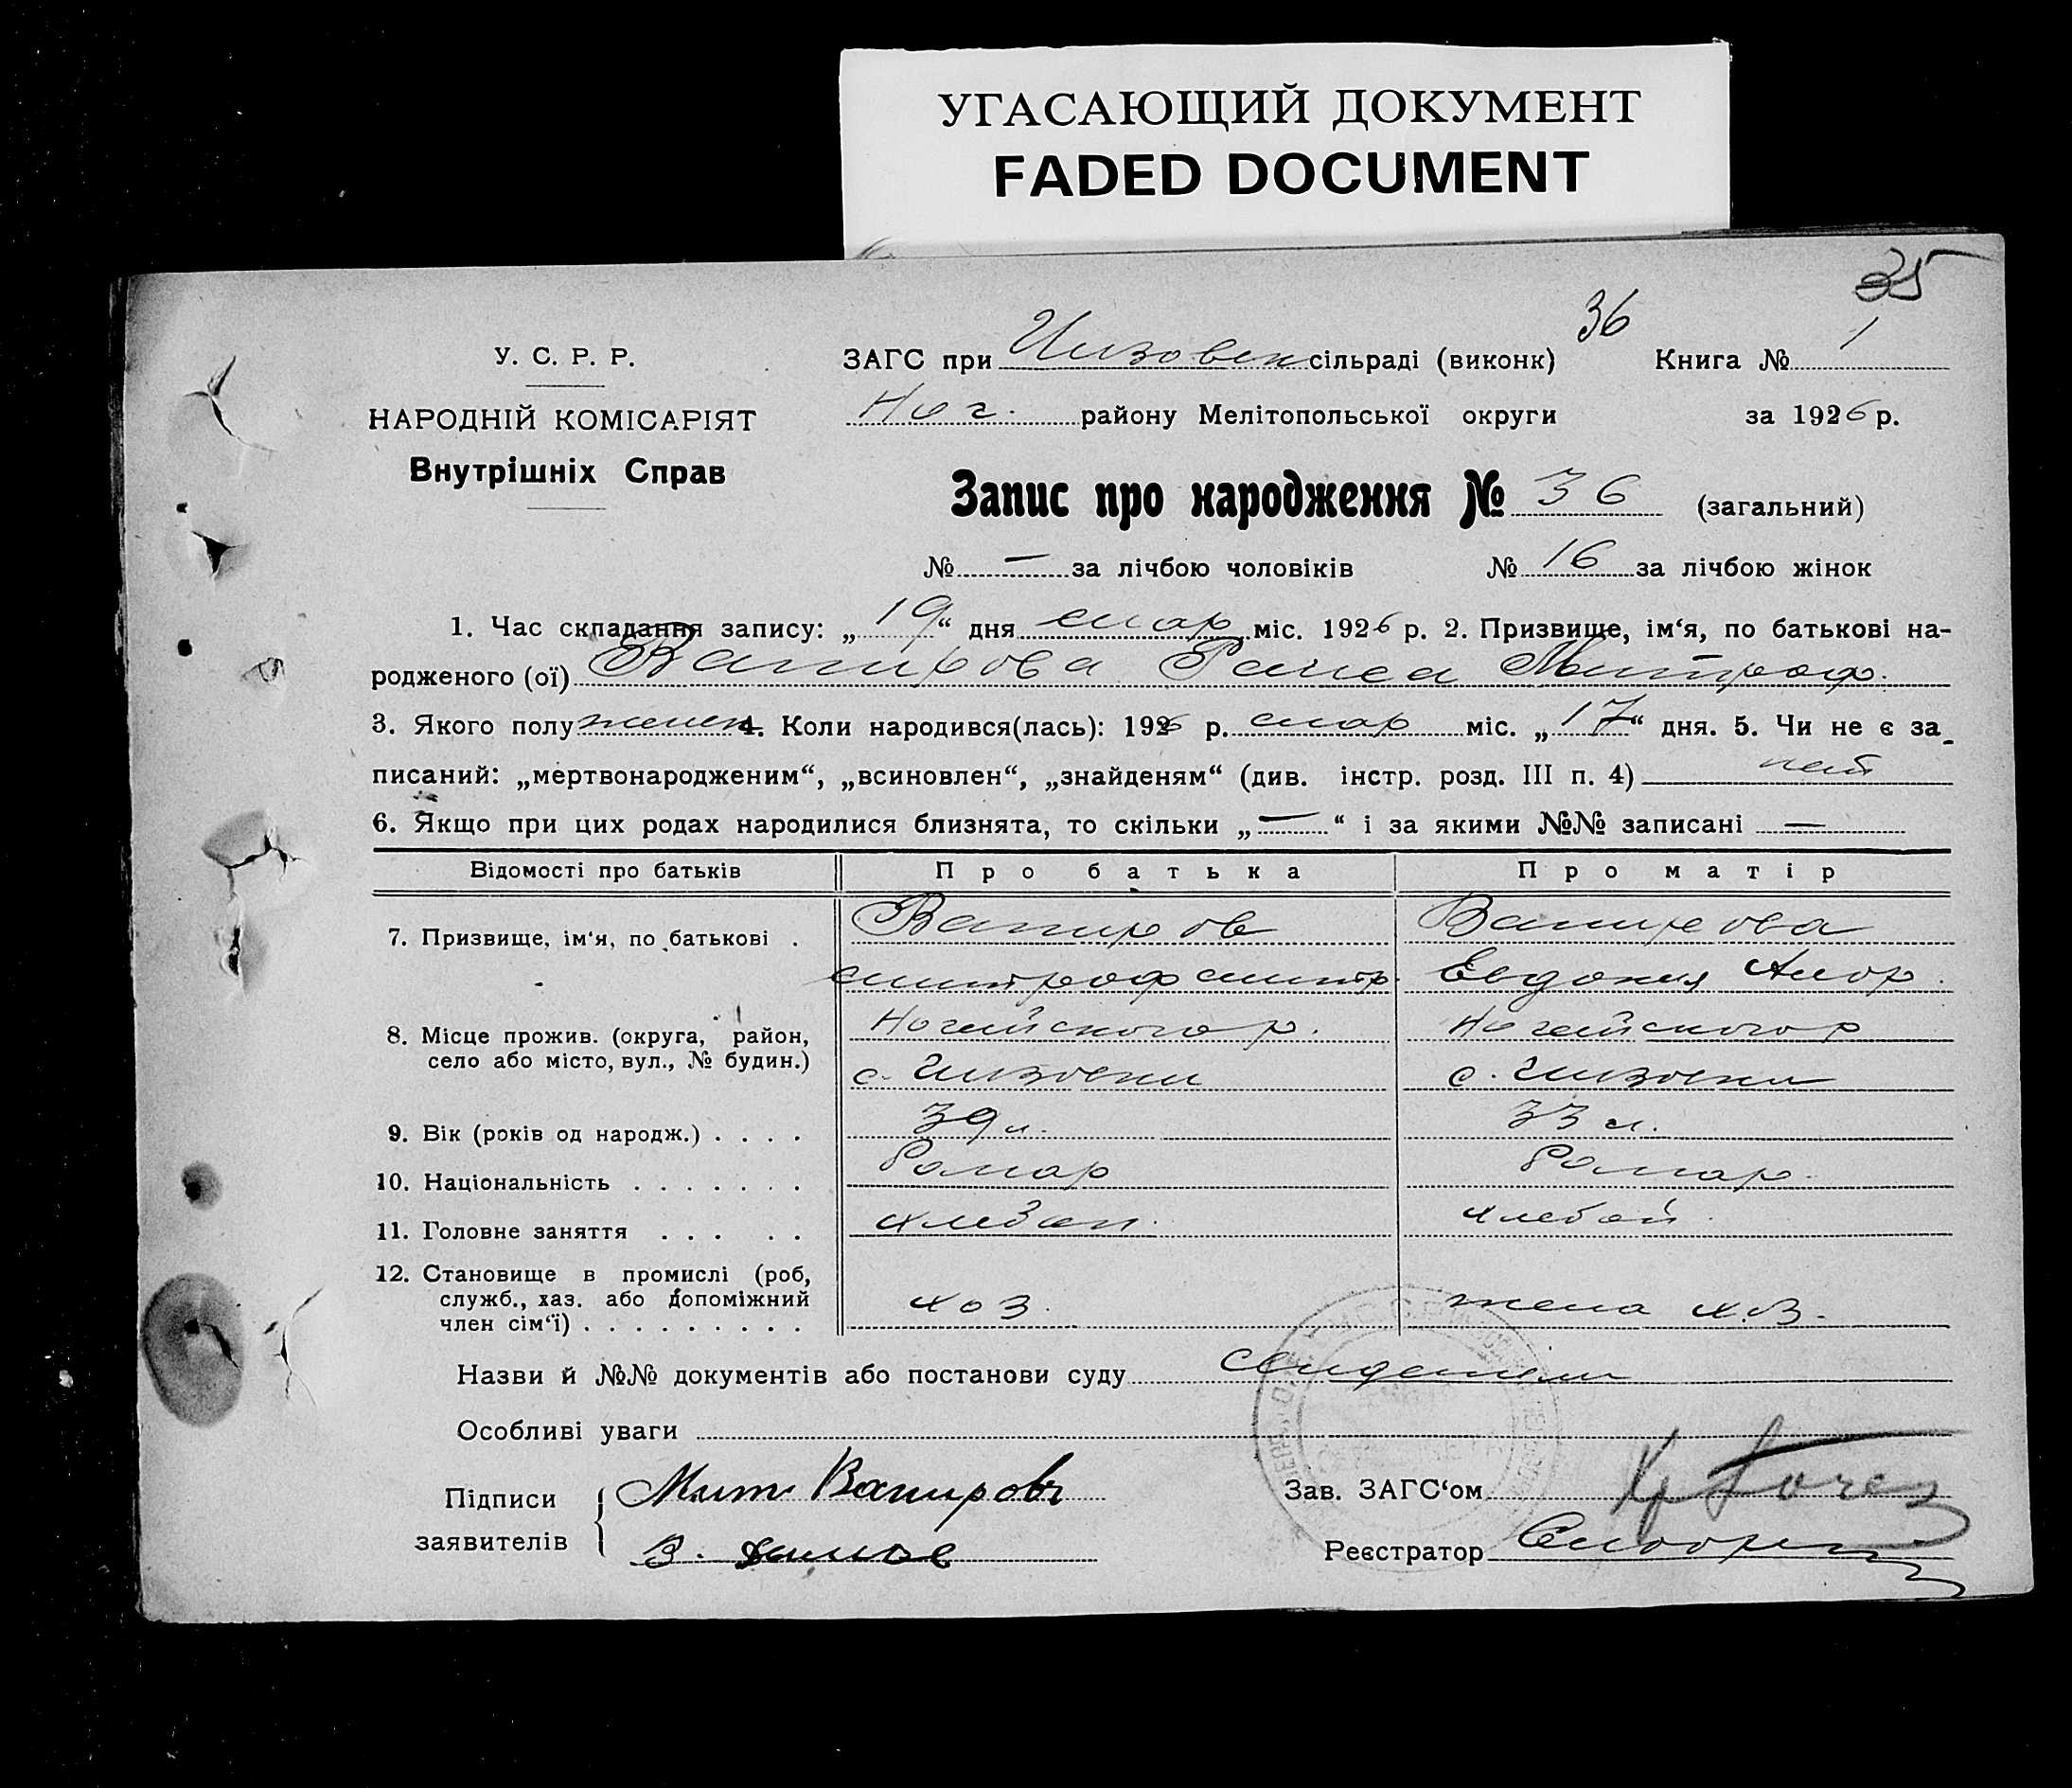 УГАСАЮЩИЙ ДОКУМЕНТ
FADED DOCUMENT
35
36
У. С. Р. Р.
НАРОДНІЙ КОМІСАРІЯТ
Внутрішніх Справ
ЗАГС при сільраді (виконк) Книга № 1
Ног. району Мелітопольської округи за 1926 р.
Запис про народження № 36 (загальний)
№ — за лічбою чоловіків № 16 за лічбою жінок
1. Час складання запису: „19“ дня мар міс. 1926 р. 2. Призвище, ім‘я, по батькові на-
родженого (ої) Вапирова Раиса Митроф.
3. Якого полу женск 4. Коли народився(лась): 1926 р. мар міс. „17“ дня. 5. Чи не є за-
писаний: „мертвонародженим“, „всиновлен“, „знайденям“ (див. інстр. розд. III п. 4) нет
6. Якщо при цих родах народилися близнята, то скільки „—“ і за якими №№ записані —
Відомості про батьків Про батька Про матір
7. Призвище, ім‘я, по батькові . Вапиров Вапирова
митроф митр. Евдокия
8. Місце прожив. (округа, район, Ногайского р. Ногайского р
село або місто, вул., № будин.) с. с.
9. Вік (років од народж.) . . . . 39 л. 33 л.
10. Національність . . . . . . .
11. Головне заняття . . . . . хлебоп. хлебоп.
12. Становище в промислі (роб,
служб., хаз. або допоміжний хоз. жена хоз.
член сім‘ї) . . . . . . . . .
Назви й №№ документів або постанови суду
Особливі уваги
Підписи Мит Вапировъ Зав. ЗАГС‘ом
заявителів В. Реєстратор